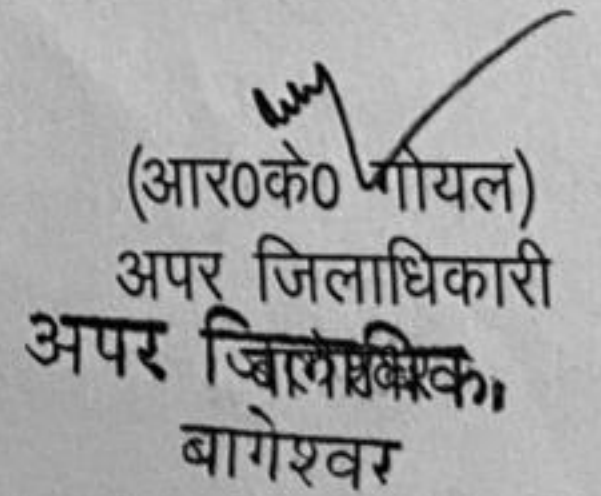 (आर0के0 गोयल)
अपर जिलाधिकारी
अपर
बागेश्वर